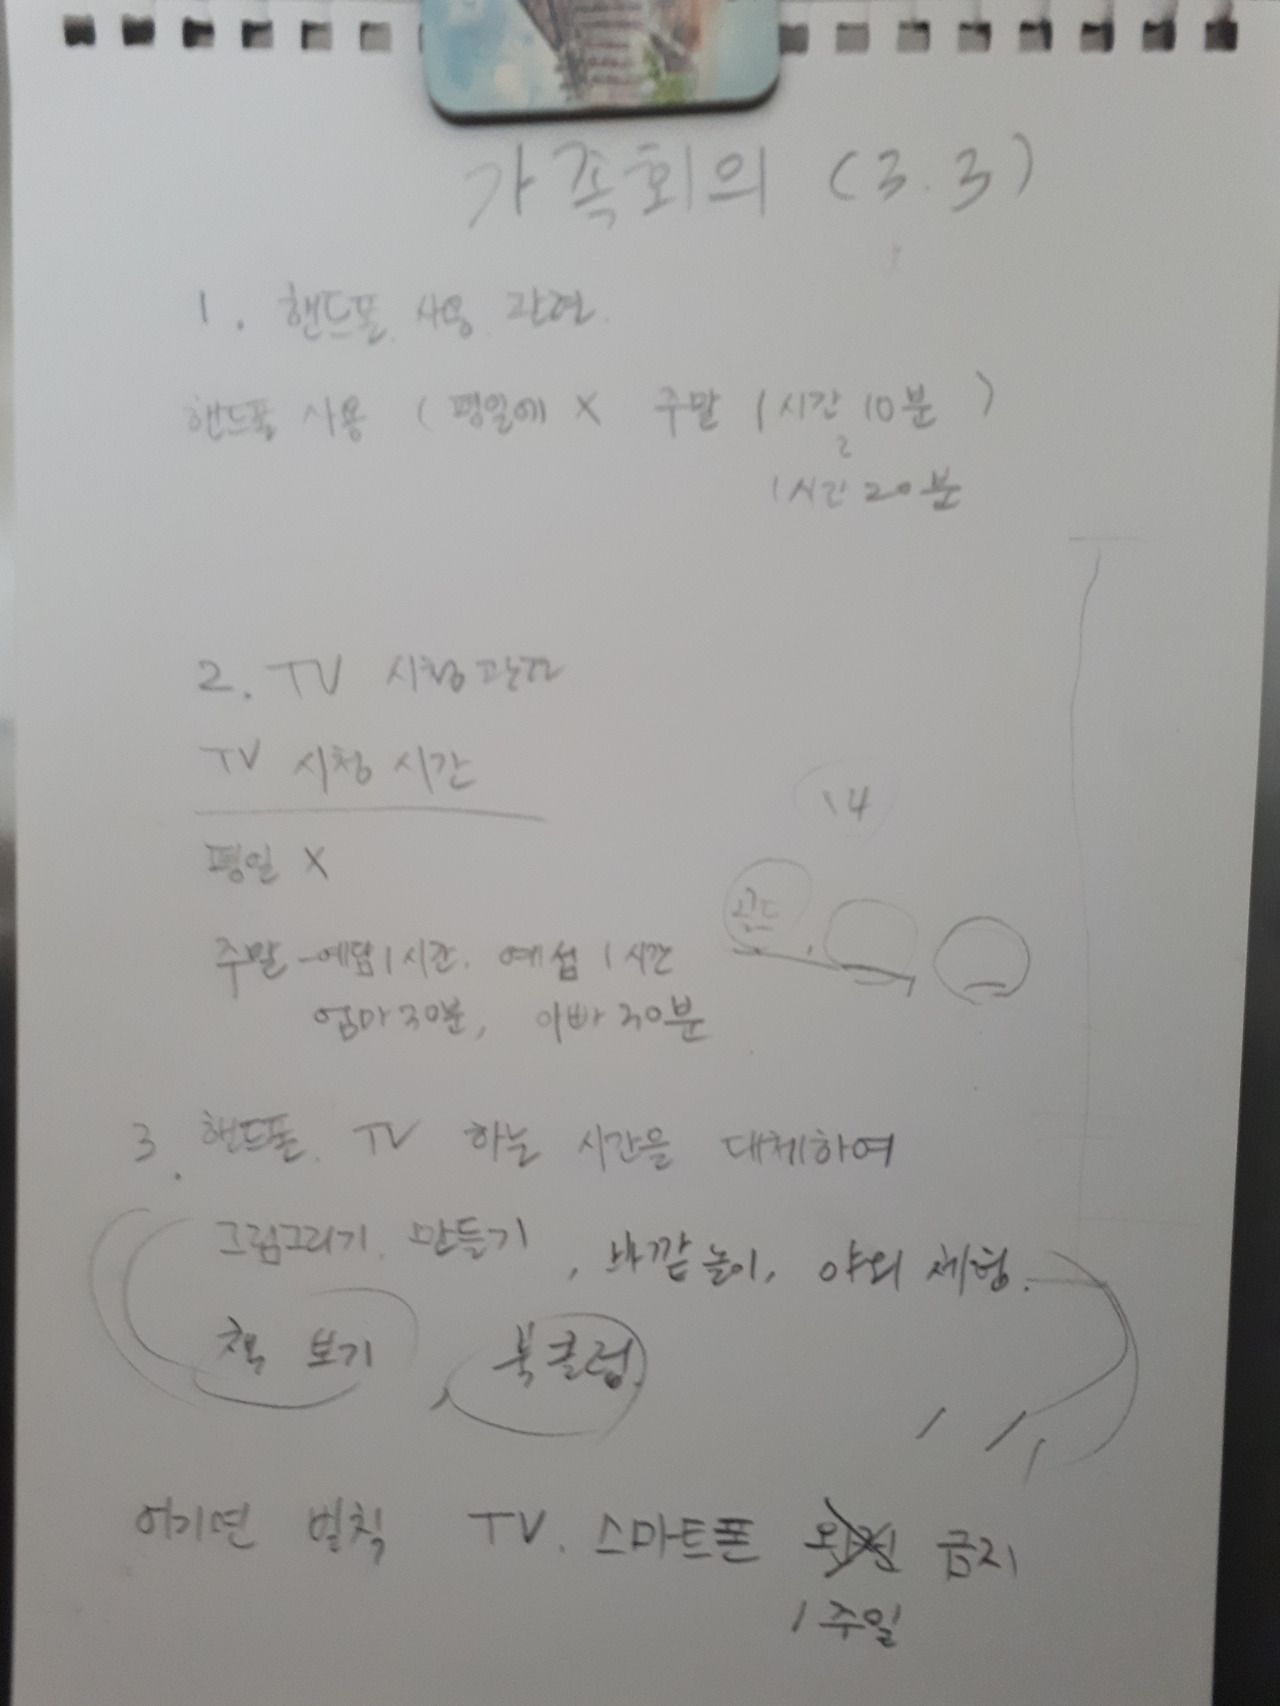 가족회의 (3.3)
1. 핸드폰 사용 관련.
핸드폰 사용 (평일에 X 주말 1시간 10분)
2
1시간 20분
2. TV 시청관련
TV 시청 시간
14
평일 X
주말 - 예담 1시간. 예섭 1시간
엄마 30분, 아빠 30분
3. 핸드폰. TV 하는 시간을 대체하여
그림그리기. 만들기, 바깥놀이, 야외 체험.
책 보기, 북클럽.
어기면 벌칙 TV. 스마트폰 금지
1주일